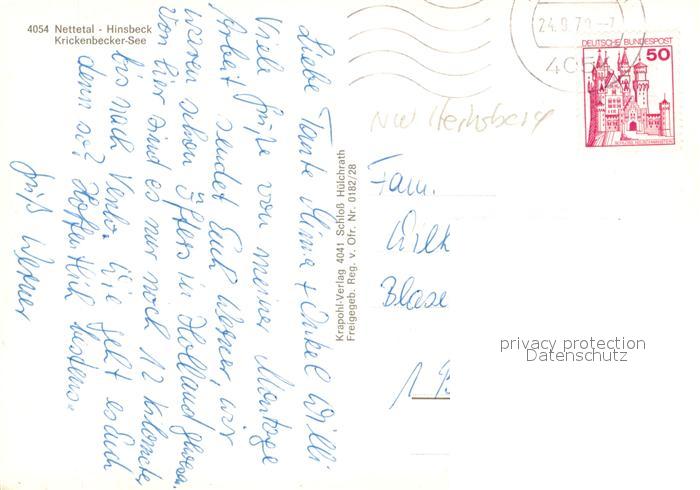 4054 Nettetal - Hinsbeck
Krickenbecker-See
Liebe Tante Mima + Onkel Willi
Viele Grüße von meiner Montage
Arbeit sendet Euch Werner, wir
waren schon öfters in Holland gewesen
von hier sind es nur noch 12 Kilometer
bis nach Venlo. Wie geht es Euch
denn so? Hoffentlich bestens.
Gruß Werner
Krapohl-Verlag 4041 Schloß Hülchrath
Freigegeb. Reg. v. Ofr. Nr. 0182/28
24.9.79
405
DEUTSCHE BUNDESPOST
50
SCHLOSS NEUSCHWANSTEIN
NW
Fam.
Wilh
Blase
1 B
privacy protection
Datenschutz